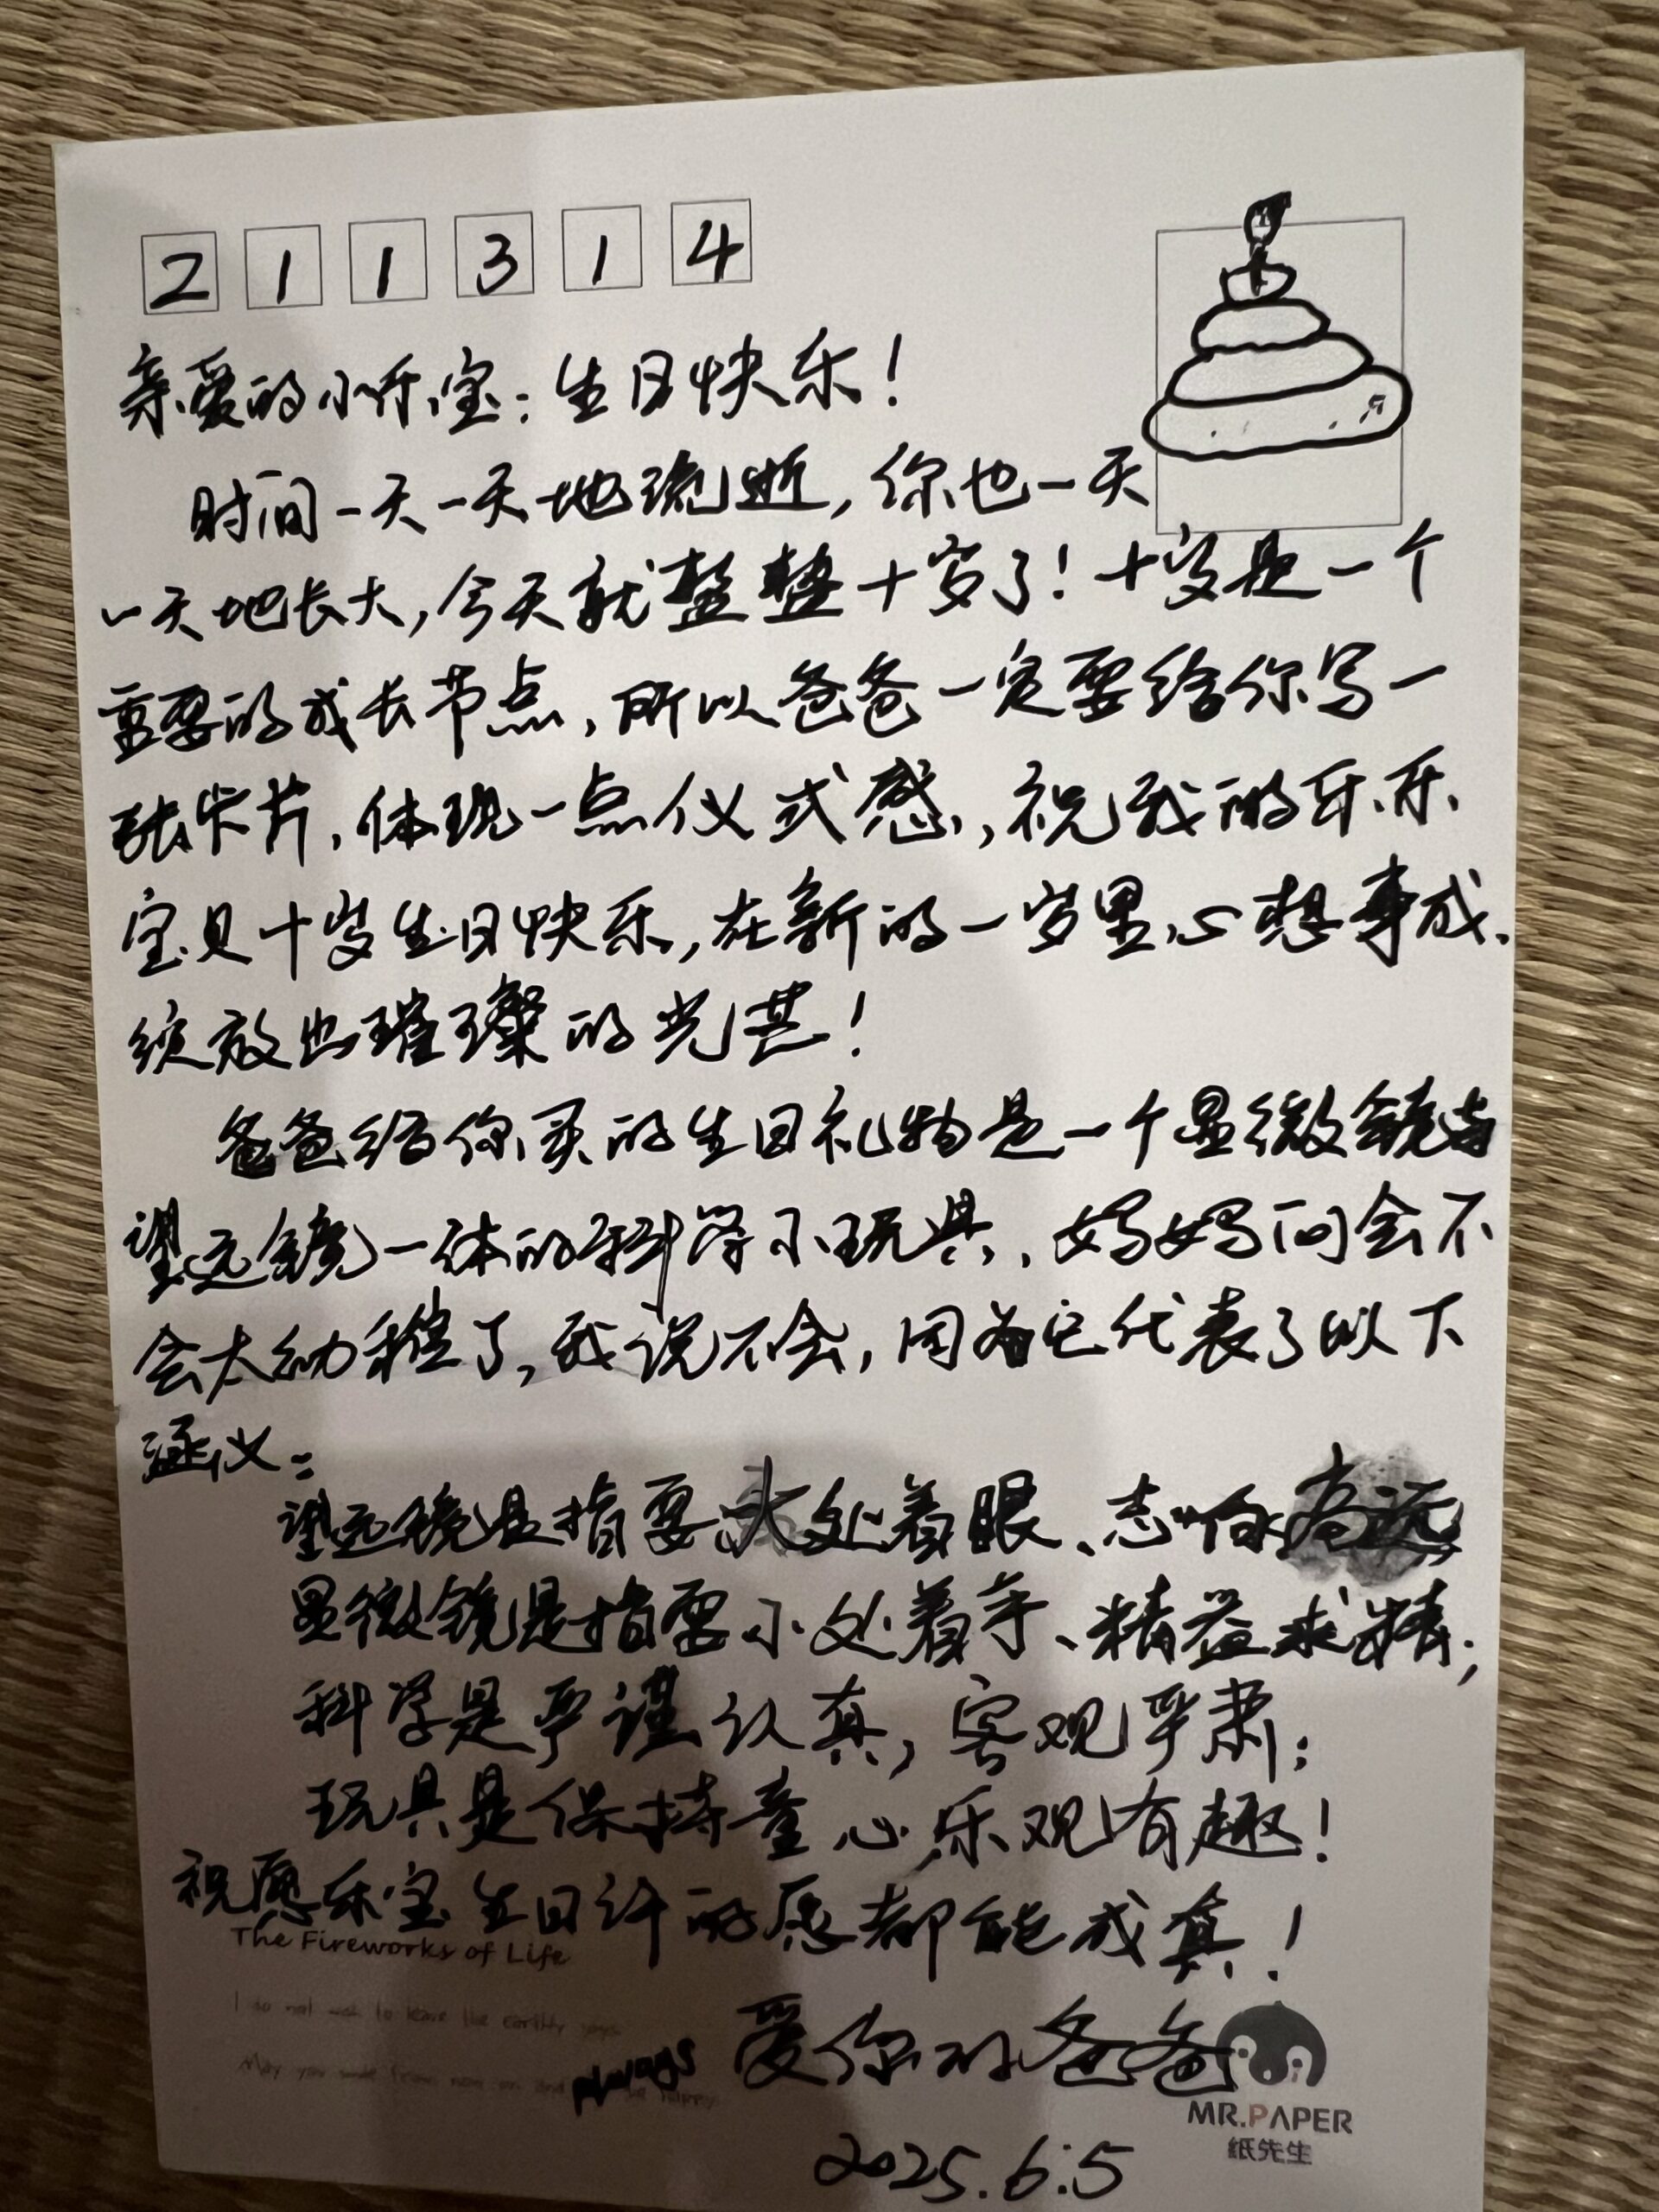 211314
亲爱的小乐宝：生日快乐！
时间一天一天地流逝，你也一天
一天地长大，今天就整整十岁了！十岁是一个
重要的成长节点，所以爸爸一定要给你写一
张卡片，体现一点仪式感，祝我的乐乐
宝贝十岁生日快乐，在新的一岁里心想事成、
绽放出璀璨的光芒！
爸爸给你买的生日礼物是一个显微镜与
望远镜一体的科学小玩具，妈妈问会不
会太幼稚了，我说不会，因为它代表了以下
涵义：
望远镜是指要大处着眼、志向高远；
显微镜是指要小处着手、精益求精；
科学是严谨认真，客观严肃；
玩具是保持童心，乐观有趣！
祝愿乐宝生日许的愿都能成真！
The Fireworks of Life
I do not wish to leave the earthly joys
May you smile from now on and always be happy
爱你的爸爸
MR.PAPER
纸先生
2025.6.5